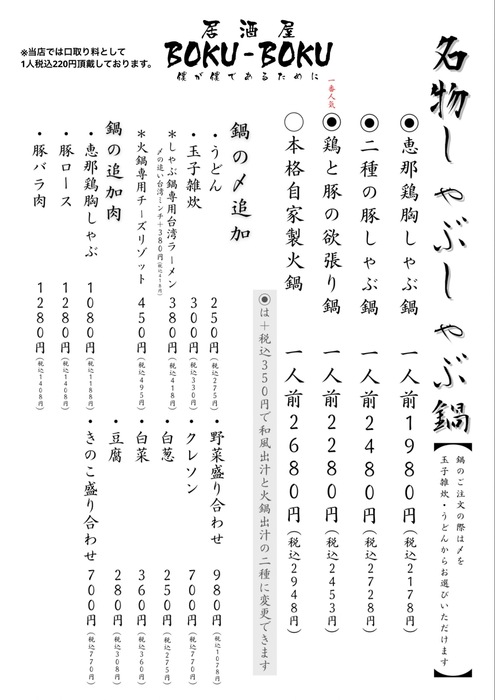 居酒屋
BOKU-BOKU
僕が僕であるために
※当店では口取り料として
1人税込220円頂戴しております。
名物しゃぶしゃぶ鍋
【鍋のご注文の際は〆を
玉子雑炊・うどんからお選びいただけます】
◉恵那鶏胸しゃぶ鍋 一人前1980円(税込2178円)
◉二種の豚しゃぶ鍋 一人前2480円(税込2728円)
一番人気
◉鶏と豚の欲張り鍋 一人前2280円(税込2453円)
○本格自家製火鍋 一人前2680円(税込2948円)
◉は+税込350円で和風出汁と火鍋出汁の二種に変更できます
鍋の〆追加
・うどん 250円(税込275円)
・玉子雑炊 300円(税込330円)
*しゃぶ鍋専用台湾ラーメン 380円(税込418円)
〆の追い台湾ミンチ+380円(税込418円)
*火鍋専用チーズリゾット 450円(税込495円)
鍋の追加肉
・恵那鶏胸しゃぶ 1080円(税込1188円)
・豚ロース 1280円(税込1408円)
・豚バラ肉 1280円(税込1408円)
・野菜盛り合わせ 980円(税込1078円)
・クレソン 700円(税込770円)
・白葱 250円(税込275円)
・白菜 360円(税込360円)
・豆腐 280円(税込308円)
・きのこ盛り合わせ 700円(税込770円)